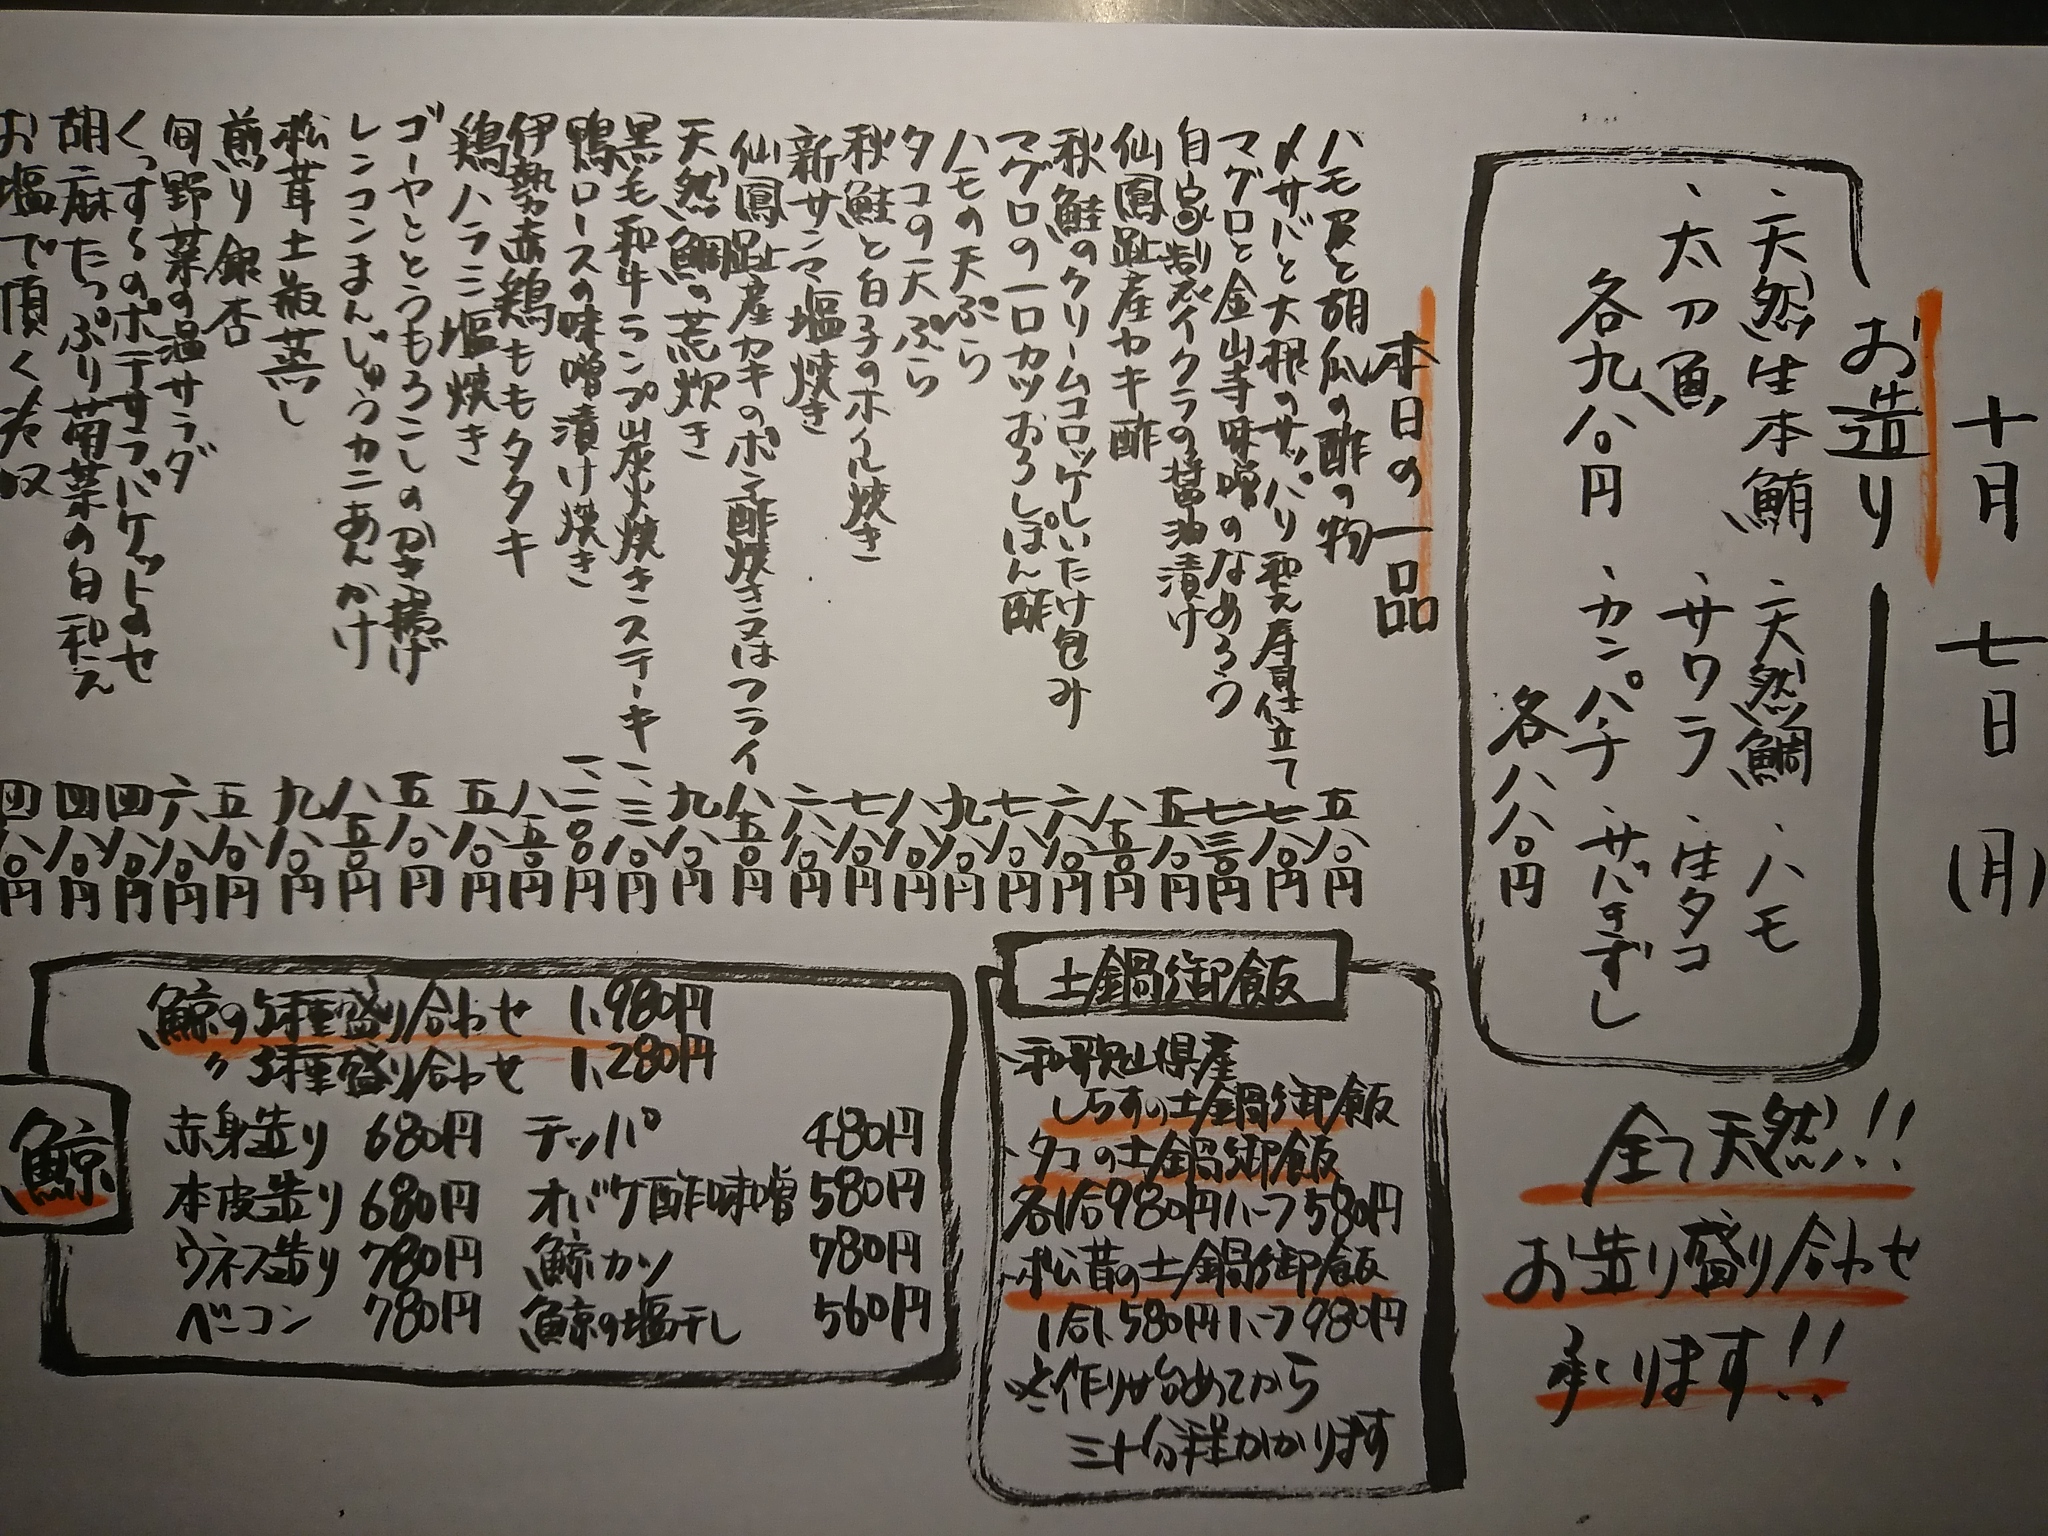 十月 七日 (月)
お造り
、天然生本鮪 、天然鯛 、ハモ
、太刀魚 、サワラ 、生タコ
各九八〇円 、カンパチ 、サバきずし
各八八〇円
全て天然!!
お造り盛り合わせ
承ります!!
本日の一品
ハモ皮と胡瓜の酢の物 五八〇円
〆サバと大根のサッパリ和え寿司仕立て 七八〇円
マグロと金山寺味噌のなめろう 七三〇円
自家製イクラの醤油漬け 五八〇円
仙鳳趾産カキ酢 八五〇円
秋鮭のクリームコロッケしいたけ包み 六八〇円
マグロの一口カツおろしぽん酢 七八〇円
ハモの天ぷら 九八〇円
タコの天ぷら 八八〇円
秋鮭と白子のホイル焼き 七八〇円
新サンマ塩焼き 六八〇円
仙鳳趾産カキのポン酢焼き又はフライ 八五〇円
天然鯛の荒炊き 九八〇円
黒毛和牛ランプ炭火焼きステーキ 一、三八〇円
鴨ロースの味噌漬け焼き 一、二〇〇円
伊勢赤鶏ももタタキ 八五〇円
鶏ハラミ塩焼き 五八〇円
ゴーヤととうもろこしのかき揚げ 五八〇円
レンコンまんじゅうカニあんかけ 八五〇円
松茸土瓶蒸し 九八〇円
煎り銀杏 五八〇円
旬野菜の温サラダ 六八〇円
くっする のポテサラバケットのせ 四八〇円
胡麻たっぷり菊菜の白和え 四八〇円
お塩で頂く冷奴 四八〇円
土鍋御飯
、和歌山県産
しらすの土鍋御飯
、タコの土鍋御飯
各1合980円ハーフ580円
、松茸の土鍋御飯
1合1,580円ハーフ980円
※作り始めてから
三十分程かかります
鯨
鯨の5種盛り合わせ 1,980円
〃 3種盛り合わせ 1,280円
赤身造り 680円 テッパ 480円
本皮造り 680円 オバケ酢味噌 580円
ウネス造り 780円 鯨カツ 780円
ベーコン 780円 鯨の塩干し 560円